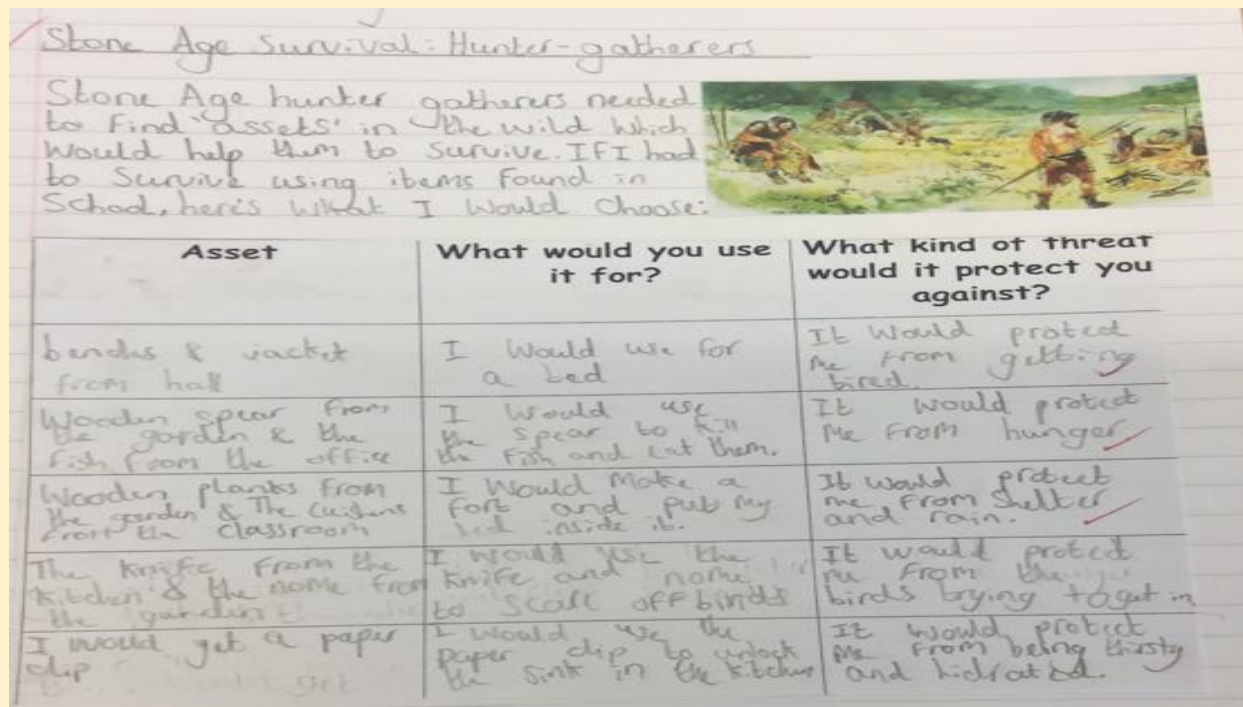 Stone Age Survival: Hunter-gatherers
Stone Age hunter gatherers needed
to find 'assets' in the wild which
would help them to survive. If I had
to survive using items found in
School, here's what I would choose:
Asset
What would you use
it for?
What kind of threat
would it protect you
against?
benches & jacket
from hall
I would use for
a bed
It would protect
me from getting
tired.
Wooden spear from
the garden & the
fish from the office
I would use
the spear to kill
the fish and eat them.
It would protect
me from hunger
Wooden planks from
the garden & The
from the classroom
I would make a
fort and put my
bed inside it.
It would protect
me from shelter
and rain.
The knife from the
kitchen & the nome from
the garden
I would use the
knife and nome
to scare off birds
It would protect
me from the
birds trying to get in
I would get a paper
clip
I would use the
paper clip to unlock
the sink in the kitchen
It would protect
me from being thirsty
and hidrated.